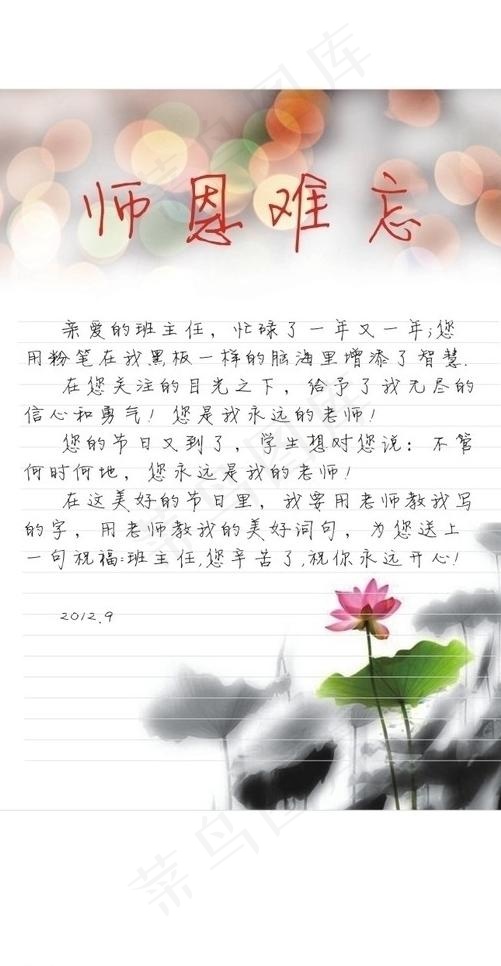 师恩难忘
亲爱的班主任，忙碌了一年又一年;您
用粉笔在我黑板一样的脑海里增添了智慧.
在您关注的目光之下，给予了我无尽的
信心和勇气！您是我永远的老师！
您的节日又到了，学生想对您说：不管
何时何地，您永远是我的老师！
在这美好的节日里，我要用老师教我写
的字，用老师教我的美好词句，为您送上
一句祝福:班主任,您辛苦了,祝你永远开心！
2012.9
菜鸟图库
菜鸟图库
菜鸟图库